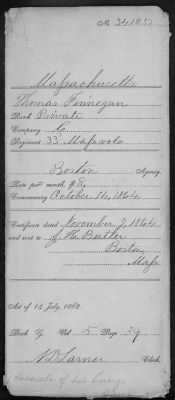 No 34183
Massachusetts
Thomas Finnegan
Rank Private
Company C
Regiment 33 Mass vols
Boston Agency.
Rate per month, $8
Commencing October 14, 1864
Certificate dated November 7, 1864
and sent to J. H. Butler
Boston
Mass
Act of 14 July, 1862.
Book G Vol 5 Page 39
N D Larner Clerk.
of his lung